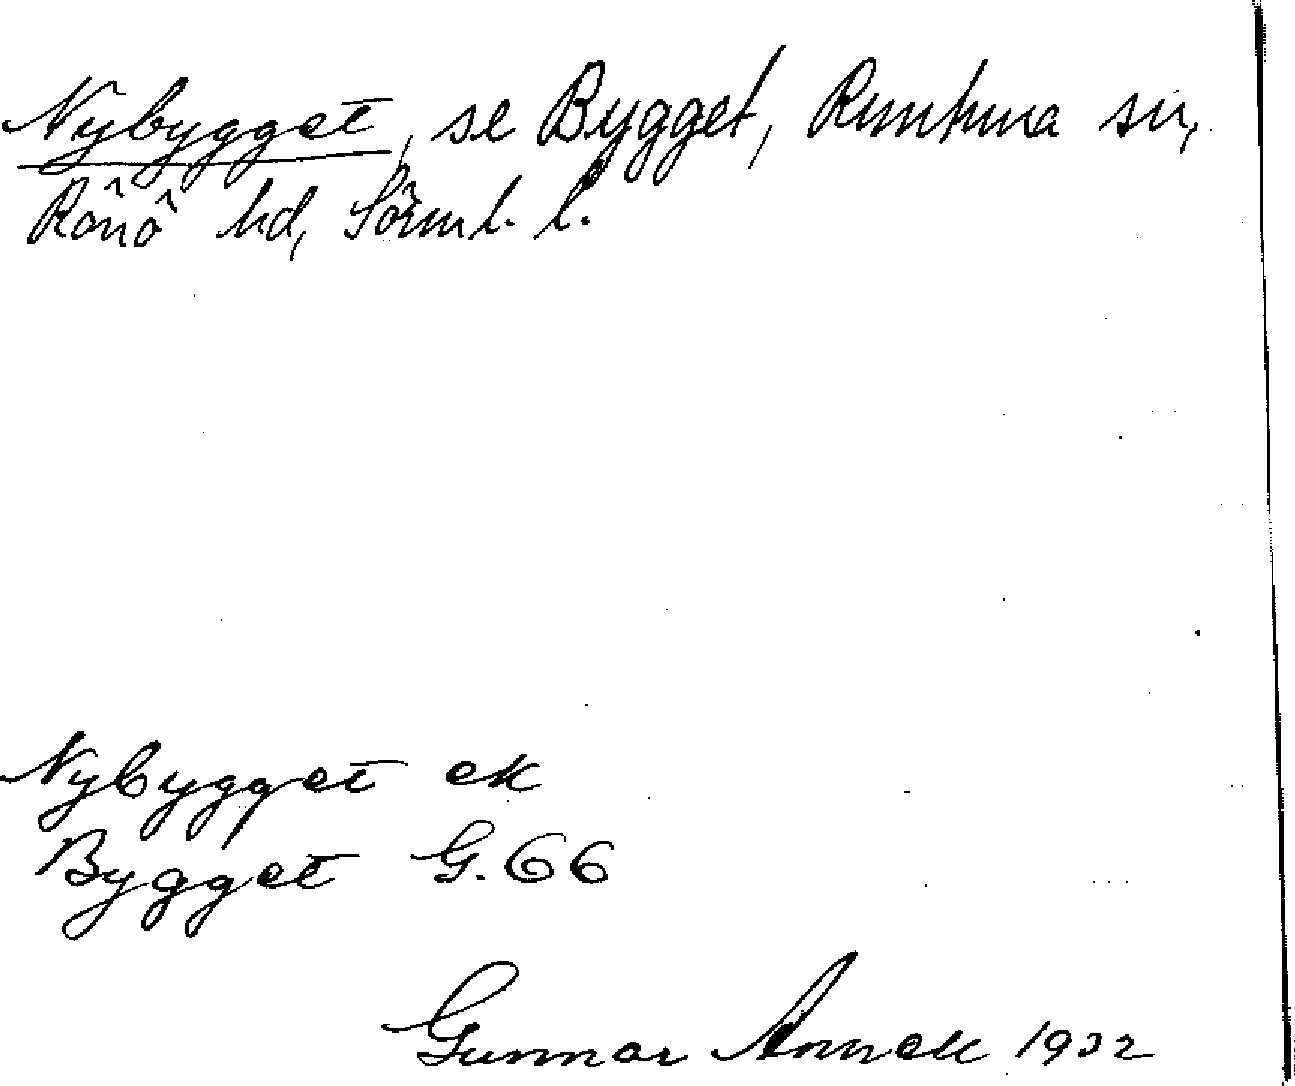 Nybygget, se Bygget, Runtuna sn,
Rönö hd, Sörml. l.
Nybygget ek
Bygget G. 66
Gunnar Annell 1932